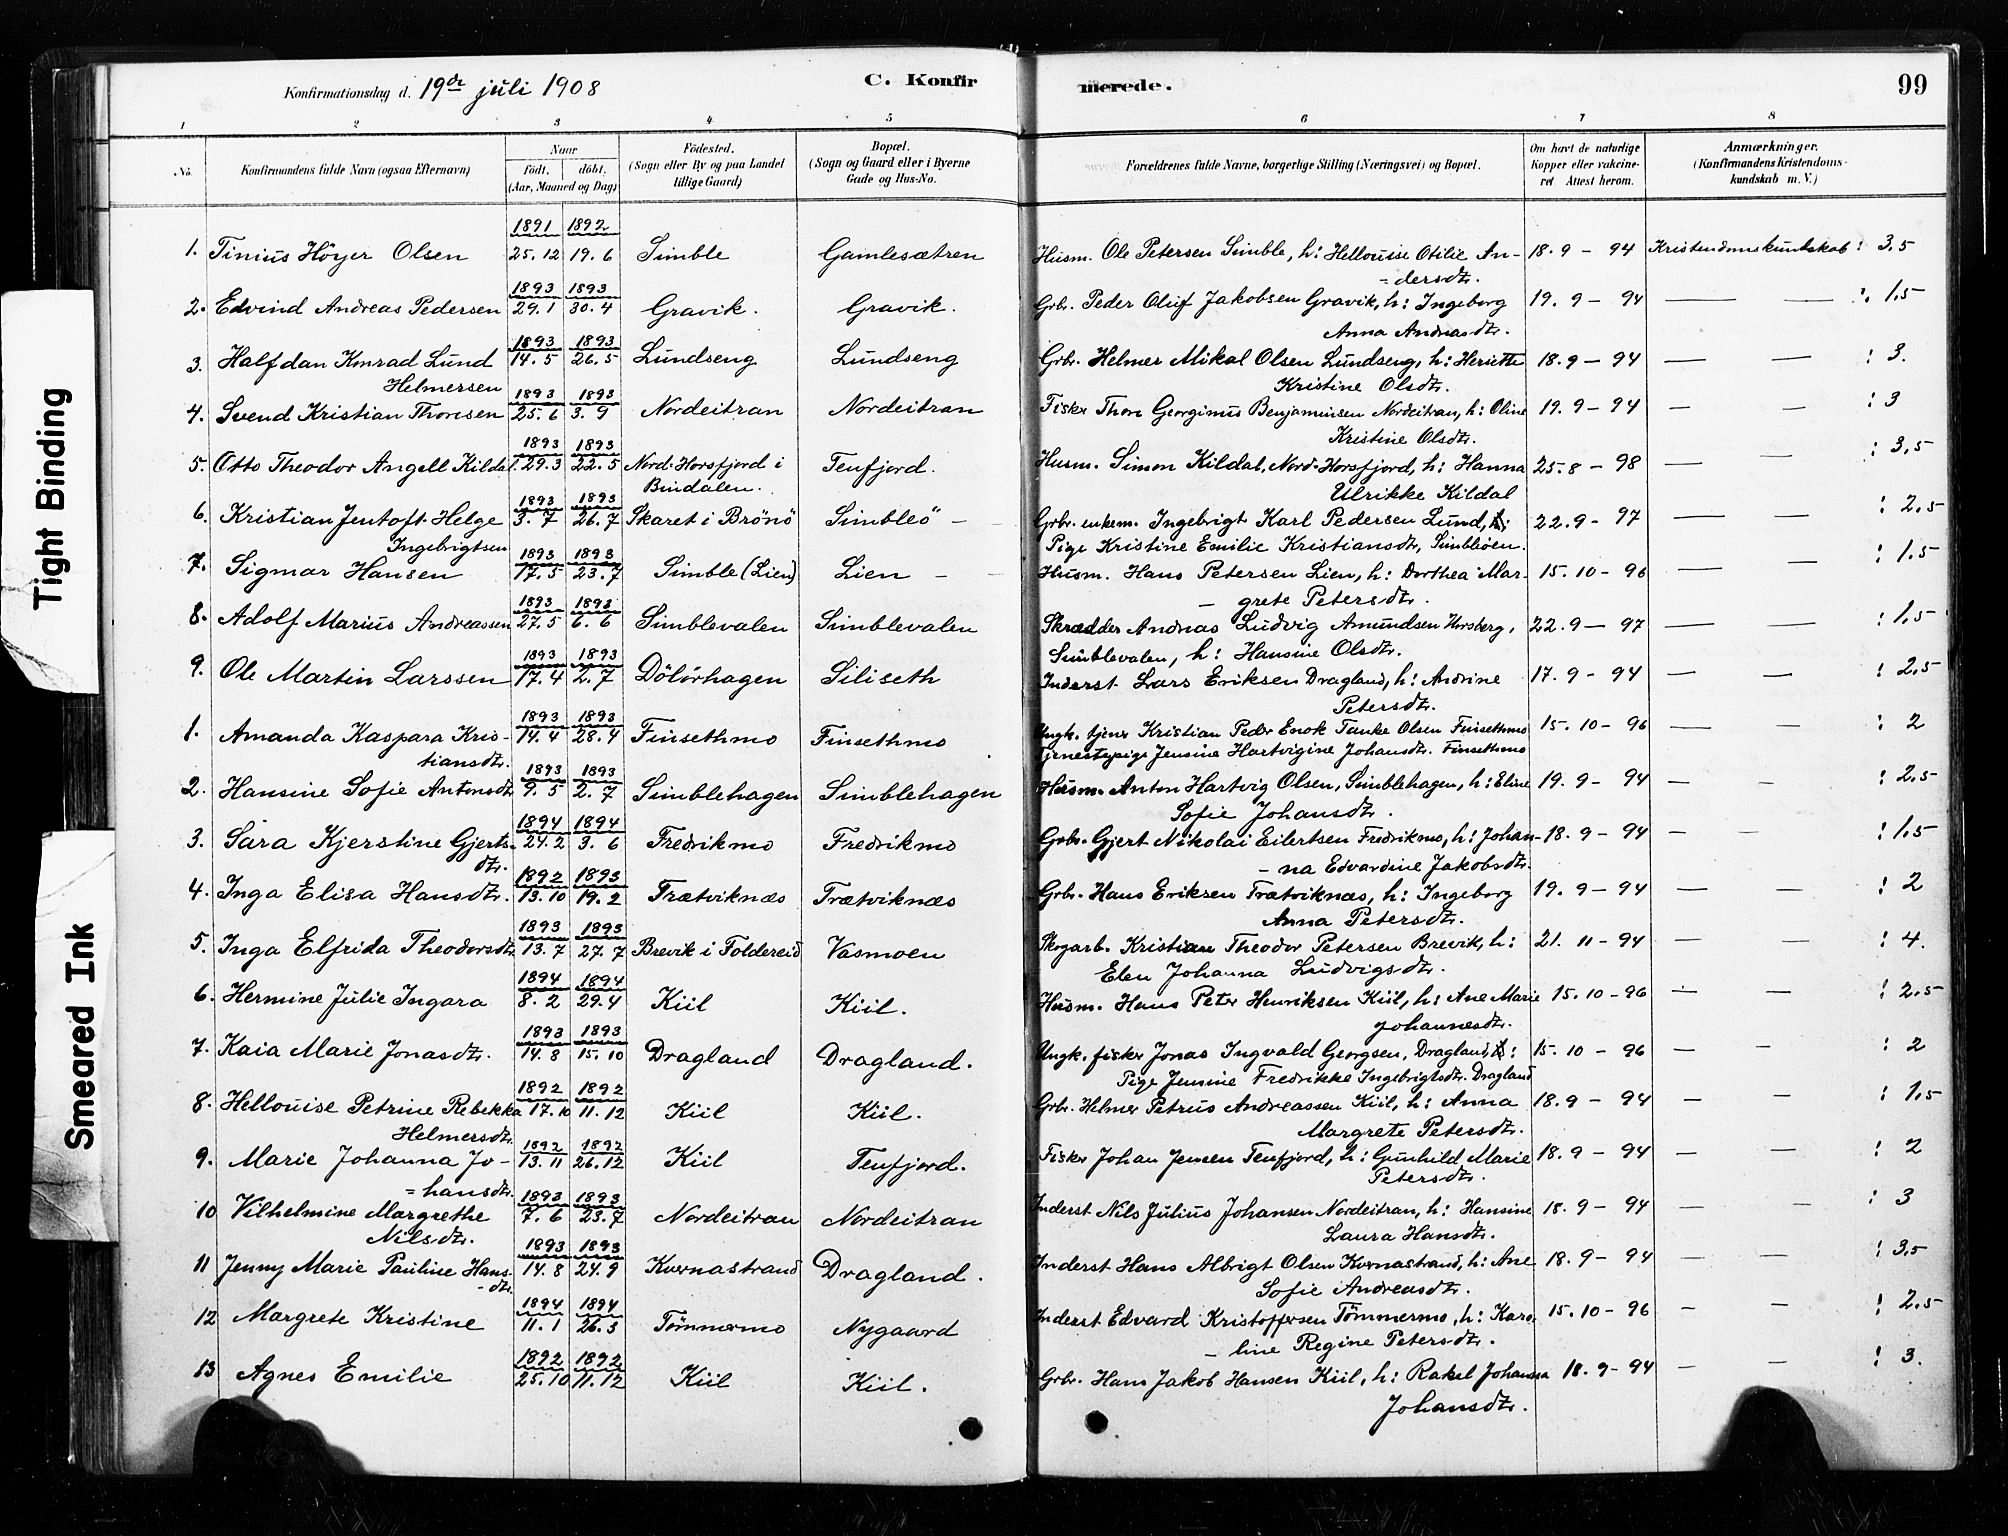 Konfirmationsdag d. 19de juli 1908
C. Konfir
merede.
99
1 2 3 4 5 6 7 8
No. Konfirmandens fulde Navn (ogsaa Efternavn) Naar födt. döbt. (Aar, Maaned og Dag) Födested. (Sogn eller By og paa Landet tillige Gaard) Bopæl. (Sogn og Gaard eller i Byerne Gade og Hus-No. Forældrenes fulde Navne, borgerlige Stilling (Næringsvei) og Bopæl. Om havt de naturlige Kopper eller vakcineret. Attest herom. Anmærkninger. (Konfirmandens Kristendomskundskab m. V.)
1891 1892
1. Tinius Höyer Olsen 25.12 19.6 Simble Gamlesætren Husm. Ole Petersen Simble, h: Hellouise Otilie An- 18.9 - 94 Kristendomskundskab : 3,5
= dersdtr.
1893 1893
2. Edvind Andreas Pedersen 29.1 30.4 Gravik. Gravik. Grbr. Peder Oluf Jakobsen Gravik, h: Ingeborg 19.9 - 94 — — : 1,5
Anna Andreasdtr.
1893 1893
3. Halfdan Konrad Lund 14.5 26.5 Lundseng Lundseng Grbr. Helmer Mikal Olsen Lundseng, h: Henriette 18.9 - 94 — — : 3.
Helmersen Kristine Olsdtr.
1893 1893
4. Svend Kristian Thonesen 25.6 3.9 Nordeitran Nordeitran Fisker Thon Georginus Benjaminsen Nordeitran, h: Oline 19.9 - 94 — — : 3
Kristine Olsdtr.
1893 1893
5. Otto Theodor Angell Kildal 29.3 22.5 Nord-Horsfjord i Terfjord. Husm. Simon Kildal, Nord-Horsfjord, h: Hanna 25.8 - 98 — — : 3,5
Bindalen. Ulrikke Kildal
1893 1893
6. Kristian Jentoft Helge 3.7 26.7 Skaret i Brönö Simbleö - Grbr. enkem. Ingebrigt Karl Pedersen Lund, 22.9 - 97 — — : 2,5
Ingebrigtsen Pige Kristine Emilie Kristiansdtr, Simbleöen.
1893 1893
7. Sigmar Hansen 17.5 23.7 Simble (Lien) Lien - Husm. Hans Petersen Lien, h: Dorthea Mar- 15.10 - 96 — — : 1,5
- grete Petersdtr.
1893 1893
8. Adolf Marius Andreassen 27.5 6.6 Simblevalen Simblevalen Skrædder Andreas Ludvig Amundsen Horsberg, 22.9 - 97 — — : 1,5
Simblevalen, h: Hansine Olsdtr.
1893 1893
9. Ole Martin Larssen 17.4 2.7 Dölörhagen Siliseth Inderst Lars Eriksen Dragland, h: Andrine 17.9 - 94 — — : 2,5
Petersdtr.
1893 1893
1. Amanda Kaspara Kris- 14.4 28.4 Finsethmo Finsethmo Ungk. tjener Kristian Peder Enok Tanke Olsen Finsethmo 15.10 - 96 — — : 2
tiansdtr. Tjenestepige Jensine Hartvigine Johansdtr. Finsethmo
1893 1893
2. Hansine Sofie Antonsdtr 9.5 2.7 Simblehagen Simblehagen Husm. Anton Hartvig Olsen, Simblehagen, h: Eline 19.9 - 94 — — : 2,5
Sofie Johansdtr.
1894 1894
3. Sara Kjerstine Gjerts- 24.2 3.6 Fredrikmo Fredrikmo Grbr. Gjert Nikolai Eilertsen Fredrikmo, h: Johan- 18.9 - 94 — — : 1,5
dtr. - na Edvardine Jakobsdtr.
1892 1893
4. Inga Elisa Hansdtr. 13.10 19.2 Trætviknæs Trætviknæs Grbr. Hans Eriksen Trætviknæs, h: Ingeborg 19.9 - 94 — — : 2
Anna Petersdtr.
1893 1893
5. Inga Elfrida Theodorsdtr 13.7 27.7 Brevik i Foldereid Vasmoen Skogarb. Kristian Theodor Petersen Brevik, h: 21.11 - 94 — — : 4.
Elen Johanna Ludvigsdtr.
1894 1894
6. Hermine Julie Ingara 8.2 29.4 Kiil Kiil. Husm. Hans Peter Henriksen Kiil, h: Ane Marie 15.10 - 96 — — : 2,5
Johannesdtr.
1893 1893
7. Kaia Marie Jonasdtr. 14.8 15.10 Dragland Dragland. Ungk. fisker Jonas Ingvald Georgsen, Dragland, 15.10 - 96 — — : 2
Pige Jensine Fredrikke Ingebrigtsdtr. Dragland
1892 1892
8. Hellouise Petrine Rebekka 17.10 11.12 Kiil Kiil. Grbr. Helmer Petrus Andreassen Kiil, h: Anna 18.9 - 94 — — : 1,5
Helmersdtr. Margrete Petersdtr.
1892 1892
9. Marie Johanna Jo- 13.11 26.12 Kiil Terfjord. Fisker Johan Jensen Terfjord, h: Gunhild Marie 18.9 - 94 — — : 2
= hansdtr. Petersdtr.
1893 1893
10 Vilhelmine Margrethe 7.6 23.7 Nordeitran Nordeitran Inderst Nils Julius Johansen Nordeitran, h: Hansine 18.9 - 94 — — : 3
Nilsdtr. Laura Hansdtr.
1893 1893
11 Jenny Marie Pauline Hans- 14.8 24.9 Kvernastrand Dragland. Inderst Hans Albrigt Olsen Kvernastrand, h: Ane 18.9 - 94 — — : 3,5
- dtr. Sofie Andreasdtr.
1894 1894
12 Margrete Kristine 11.1 26.3 Tömmermo Nygaard Inderst Edvard Kristoffersen Tömmermo, h: Karo- 15.10 - 96 — — : 2,5
- line Regine Petersdtr.
1892 1892
13 Agnes Emilie 25.10 11.12 Kiil Kiil. Grbr. Hans Jakob Hansen Kiil, h: Rakel Johanna 18.9 - 94 — — : 3.
Johansdtr.
Tight Binding
Smeared Ink